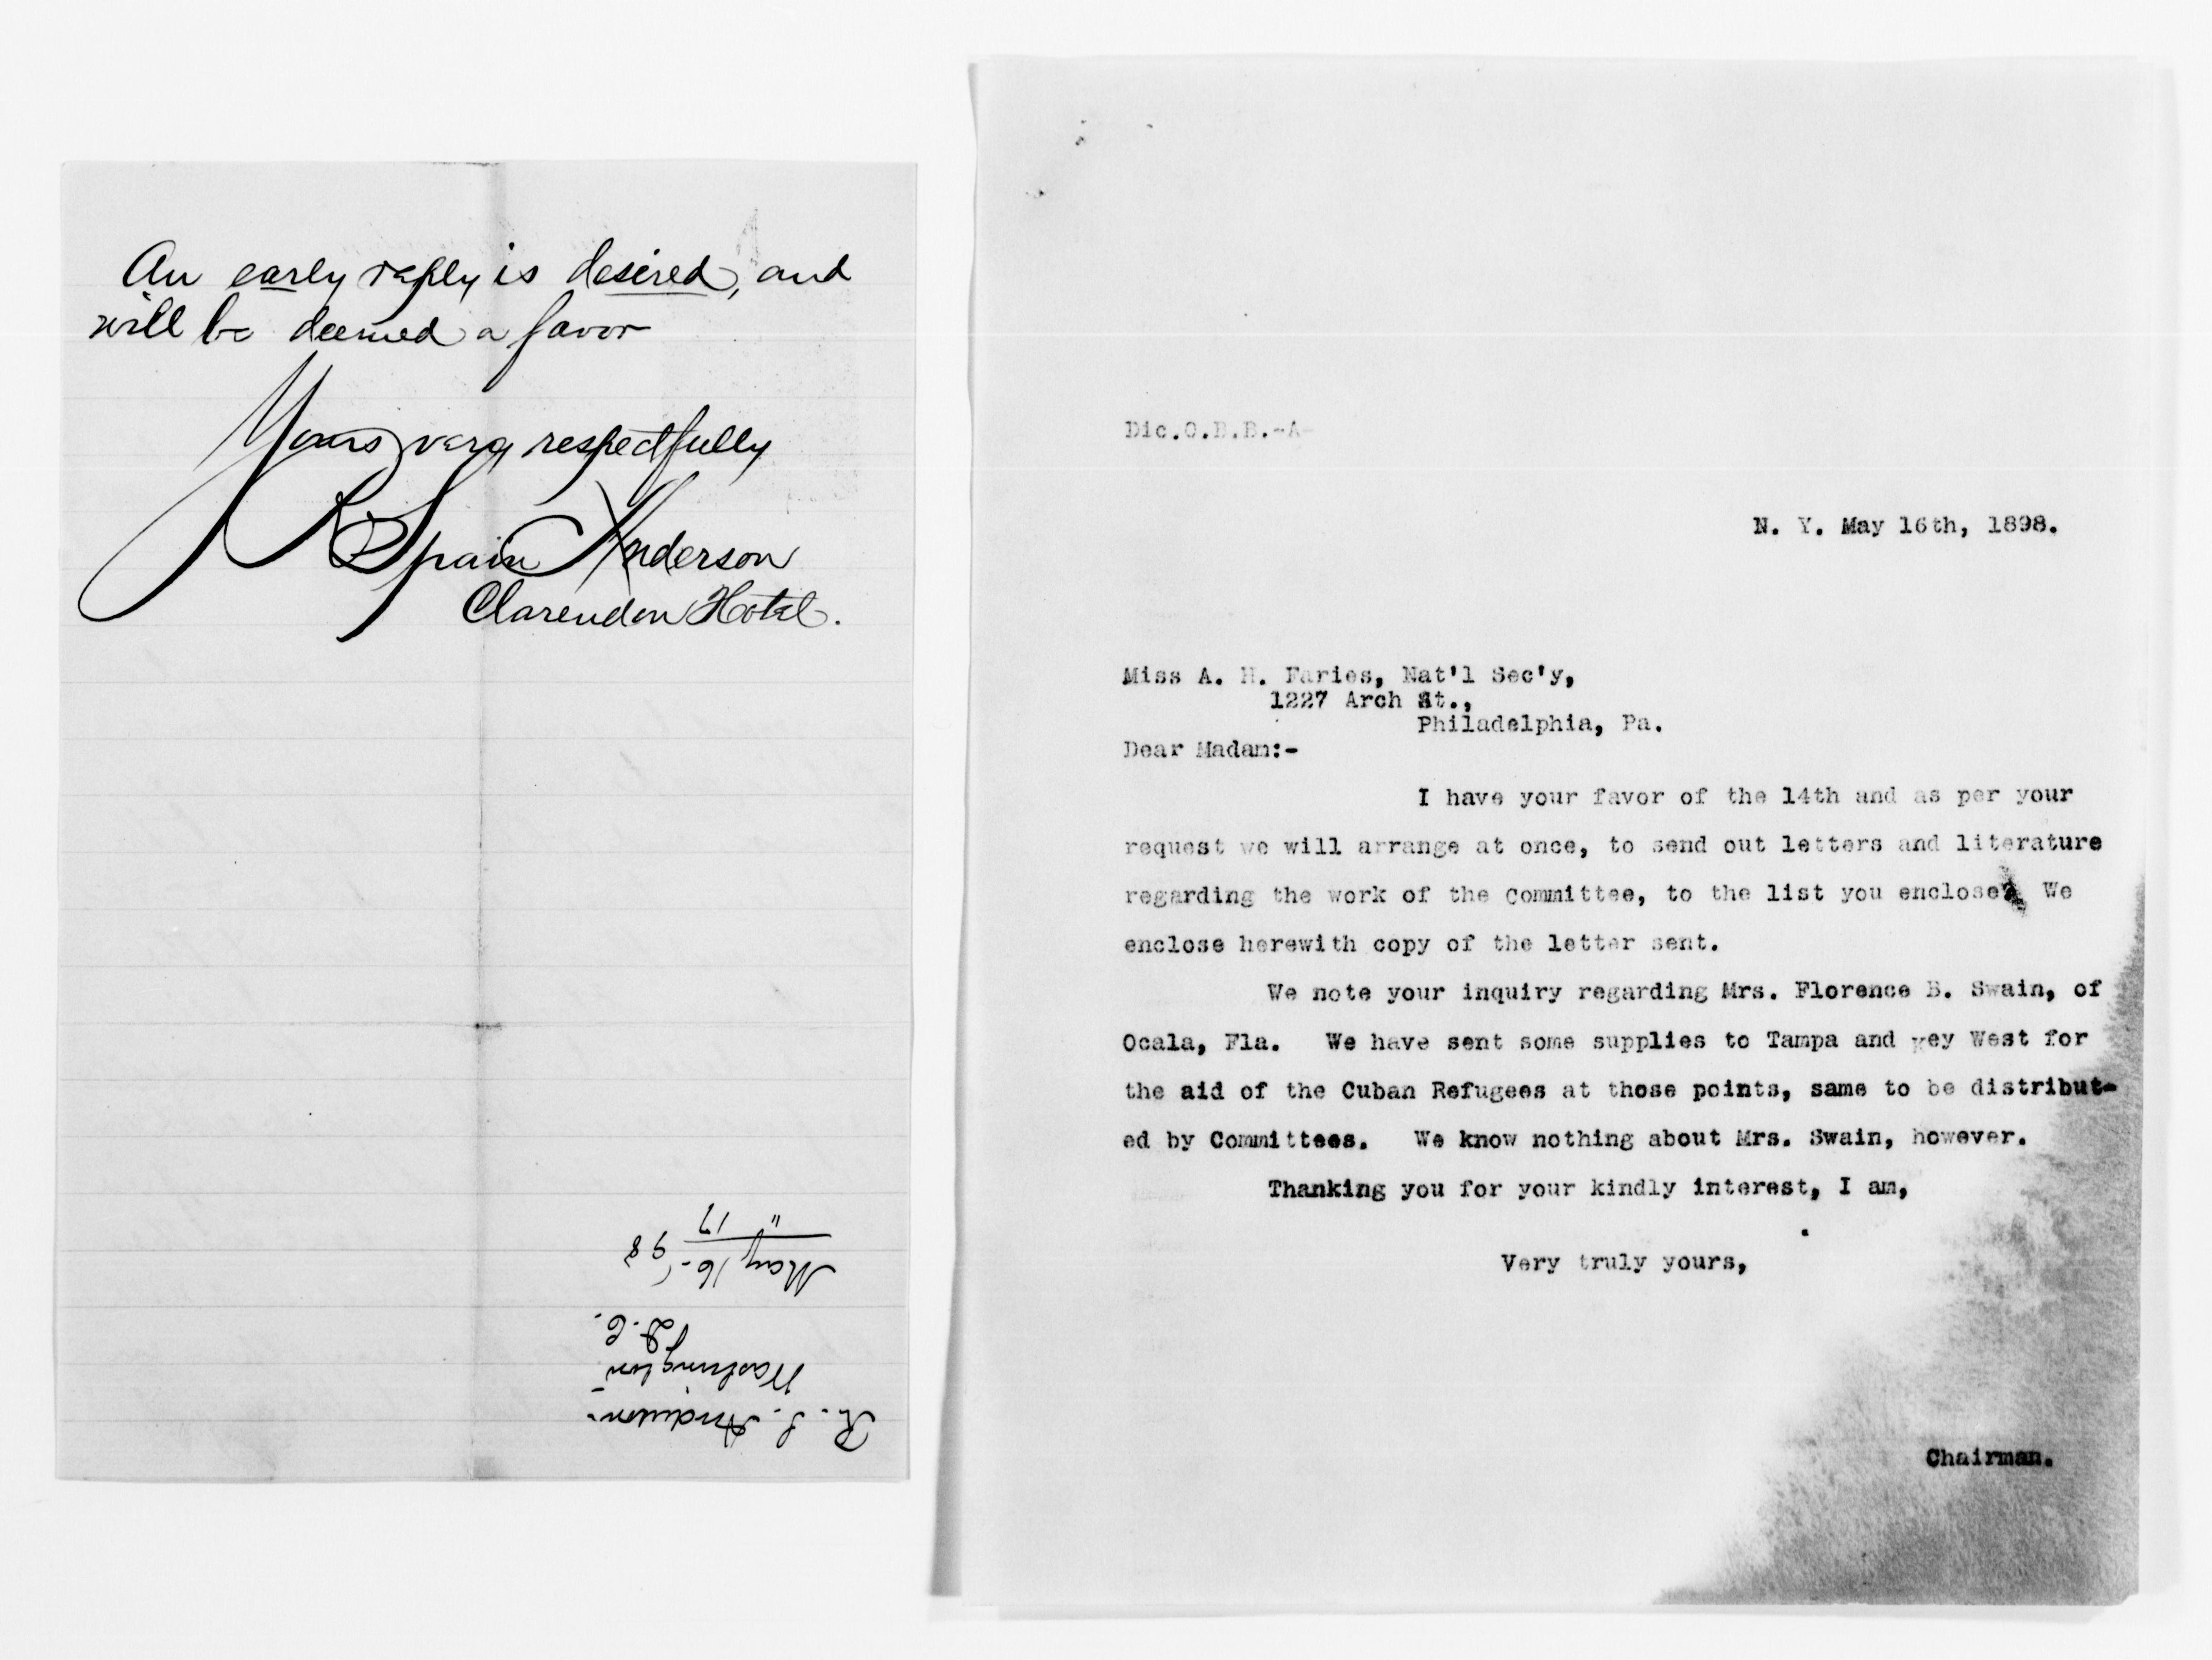 An early reply is desired, and
will be deemed a favor
Yours very respectfully
R Spain Anderson
Clarendon Hotel.
R. S. Anderson.
Washington
D.C.
May 16-98
" 17
Dic.O.B.B.-A-
N. Y. May 16th, 1898.
Miss A. H. Faries, Nat'l Sec'y,
1227 Arch St.,
Philadelphia, Pa.
Dear Madam:-
I have your favor of the 14th and as per your
request we will arrange at once, to send out letters and literature
regarding the work of the Committee, to the list you enclose. We
enclose herewith copy of the letter sent.
We note your inquiry regarding Mrs. Florence B. Swain, of
Ocala, Fla. We have sent some supplies to Tampa and Key West for
the aid of the Cuban Refugees at those points, same to be distribut-
ed by Committees. We know nothing about Mrs. Swain, however.
Thanking you for your kindly interest, I am,
Very truly yours,
Chairman.